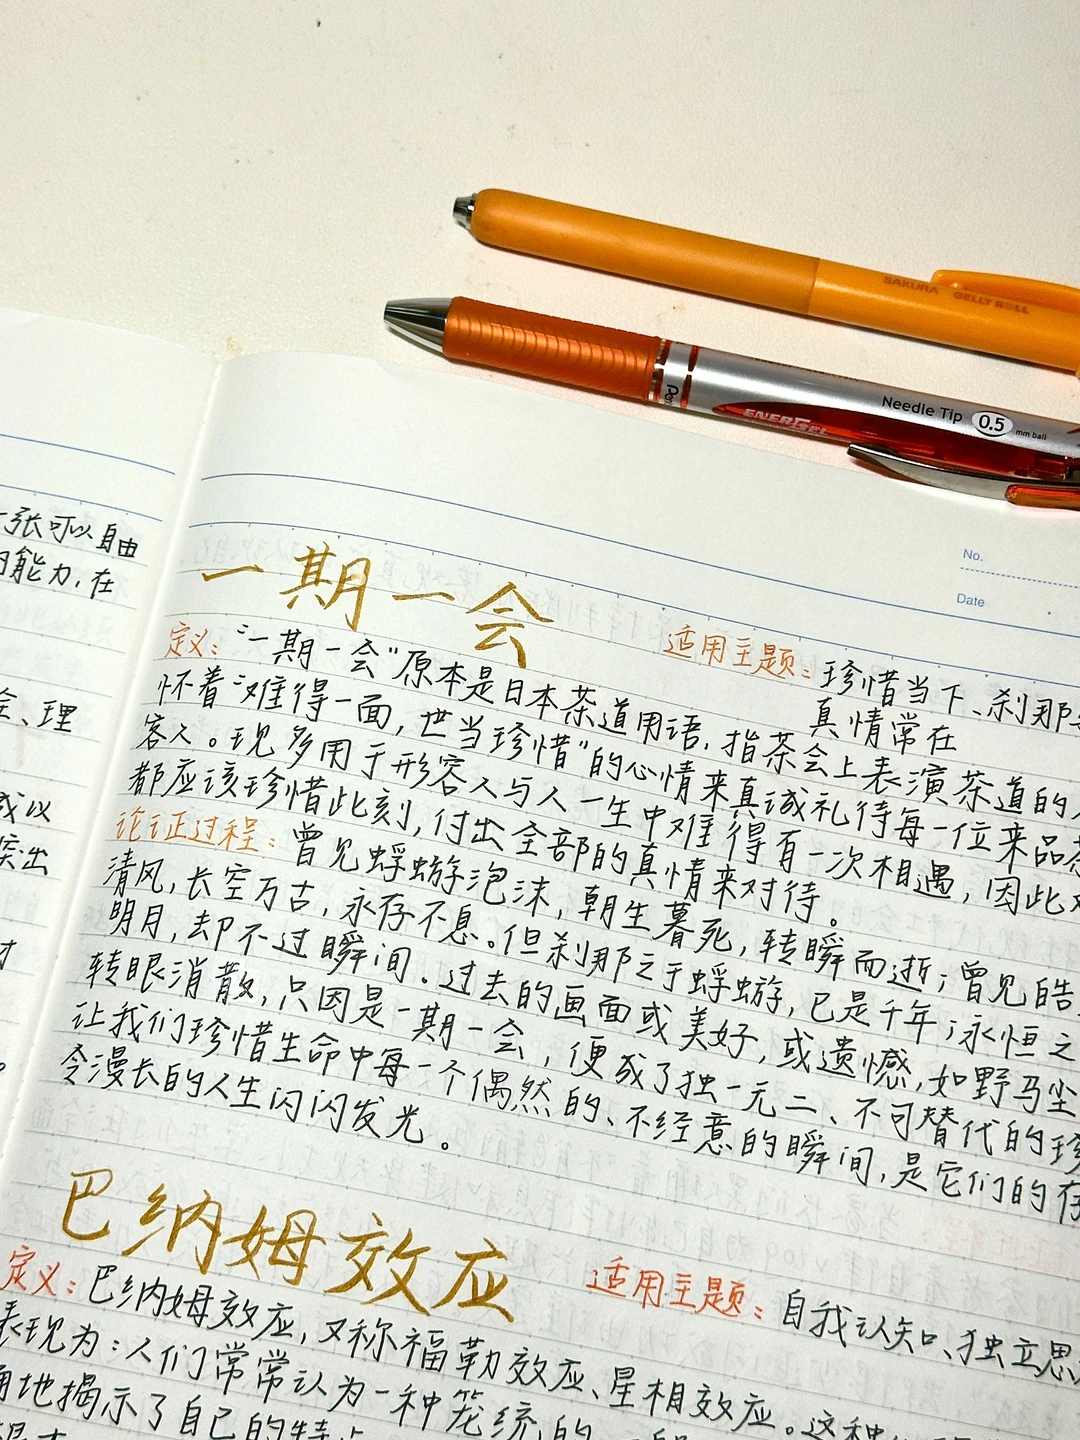 SAKURA GELLY ROLL
Pen
ENERGEL
Needle Tip 0.5 mm ball
No.
Date
张可以自由
能力,在
理
或以
突出
一期一会
定义:"一期一会"原本是日本茶道用语,指茶会上表演茶道的
适用主题:珍惜当下、刹那
真情常在
怀着"难得一面,世当珍惜"的心情来真诚礼待每一位来品茶
客人。现多用于形容人与人一生中难得有一次相遇,因此
都应该珍惜此刻,付出全部的真情来对待。
论证过程:曾见蜉蝣泡沫,朝生暮死,转瞬而逝;曾见皓
清风,长空万古,永存不息。但刹那之于蜉蝣,已是千年;永恒之
明月,却不过瞬间。过去的画面或美好,或遗憾,如野马尘
转眼消散,只因是一期一会,便成了独一元二、不可替代的珍
让我们珍惜生命中每一个偶然的、不经意的瞬间,是它们的存
令漫长的人生闪闪发光。
巴纳姆效应
定义:巴纳姆效应,又称福勒效应、星相效应。这种
适用主题:自我认知、独立思
表现为:人们常常认为一种笼统的
地揭示了自己的特点